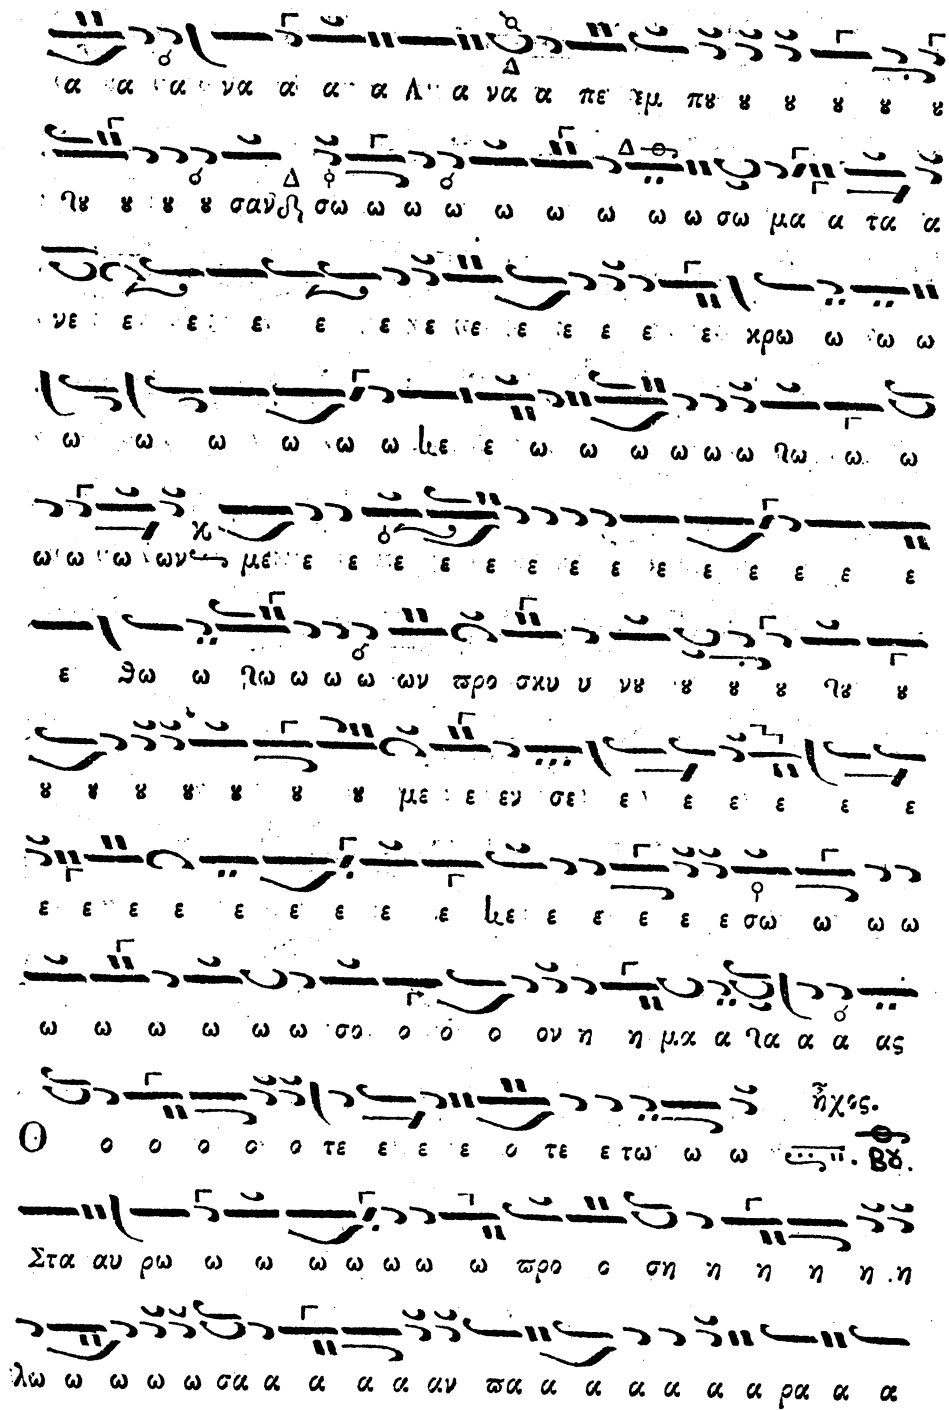 α α α να α α α Λ α να α πε τμ πȣ ȣ ȣ ȣ ȣ ȣ
τȣ ȣ ȣ ȣ σαν σω ω ω ω ω ω ω ω ω σω μα α τα α
νε ε ε ε ε ε ε ε ε ε ε ε ε κρω ω ω ω
ω ω ω ω ω ω κε ε ω ω ω ω ω ω τω ω ω
ω ω ω ων με ε ε ε ε ε ε ε ε ε ε ε ε ε ε
ε θω ω τω ω ω ω ων ϖρο σκυ υ νȣ ȣ ȣ ȣ τȣ ȣ
ȣ ȣ ȣ ȣ ȣ ȣ ȣ με ε εν σε ε ε ε ε ε ε
ε ε ε ε ε ε ε ε ε κε ε ε ε ε ε σω ω ω ω
ω ω ω ω ω ω σο ο ο ο ον η η μα α τα α α ας
ἦχος.
Ο ο ο ο ο ο τε ε ε ε ο τε ε τω ω ω Βȣ.
Στα αυ ρω ω ω ω ω ω ω ω ϖρο ο ση η η η η η
λω ω ω ω ω σα α α α α αν ϖα α α α α α α ρα α α